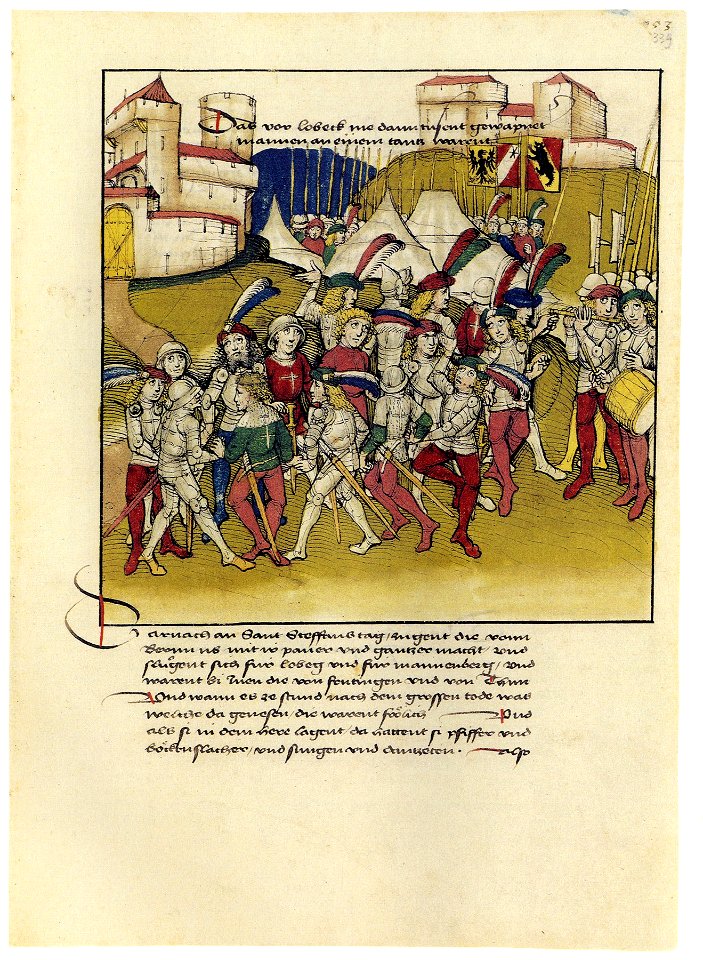 253
339
Das vor lobeck me dann tusent gewapnet
mannen an einem tantz warent
Darnach an Sant Steffens tag / zugent die vonn
Bernn us mit ir paner vnd gantzer macht / vnd
slůgent sich fur lobeg vnd fur mannenberg / vnd
warent bi Inen die von frutingen vnd von Thun
Und wann es ze stund nach dem grossen tode was
welche da genesen / die warent frölich Und
als si in dem here lagent / da hattent si pfiffer vnd
böckenslacher / vnd sungen vnd dantzeten · also